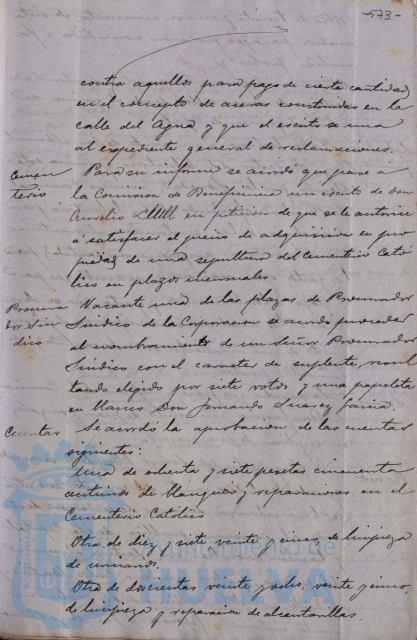 -573-
contra aquellos para pago de cierta cantidad
en el concepto de aceras construidas en la
calle del Agua y que el escrito se una
al expediente general de reclamaciones.
Cemen
terio
Para su informe se acordó que pase a
la Comision de Beneficencia un escrito de Don
Aurelio en peticion de que se le autorice
á satisfacer el precio de adquisicion en pro
piedad de una sepultura del Cementerio Cató
lico en plazos mensuales.
Procura
dor Sin
dico
Vacante una de las plazas de Procurador
Sindico de la Corporacion se acordó proceder
al nombramiento de un Señor Procurador
Sindico con el caracter de suplente, resul
tando elegido por siete votos y una papeleta
en blanco Don Fernando Suarez Garcia
Cuentas
Se acordó la aprobacion de las cuentas
siguientes:
Una de ochenta y siete pesetas cincuenta
centimos de blanqueo y reparaciones en el
Cementerio Catolico
Otra de diez y siete veinte y cinco, de limpieza
de
Otra de doscientas veinte y ocho, veinte y cinco
de limpieza y reparacion de alcantarillas.
Ayuntamiento de
HUELVA